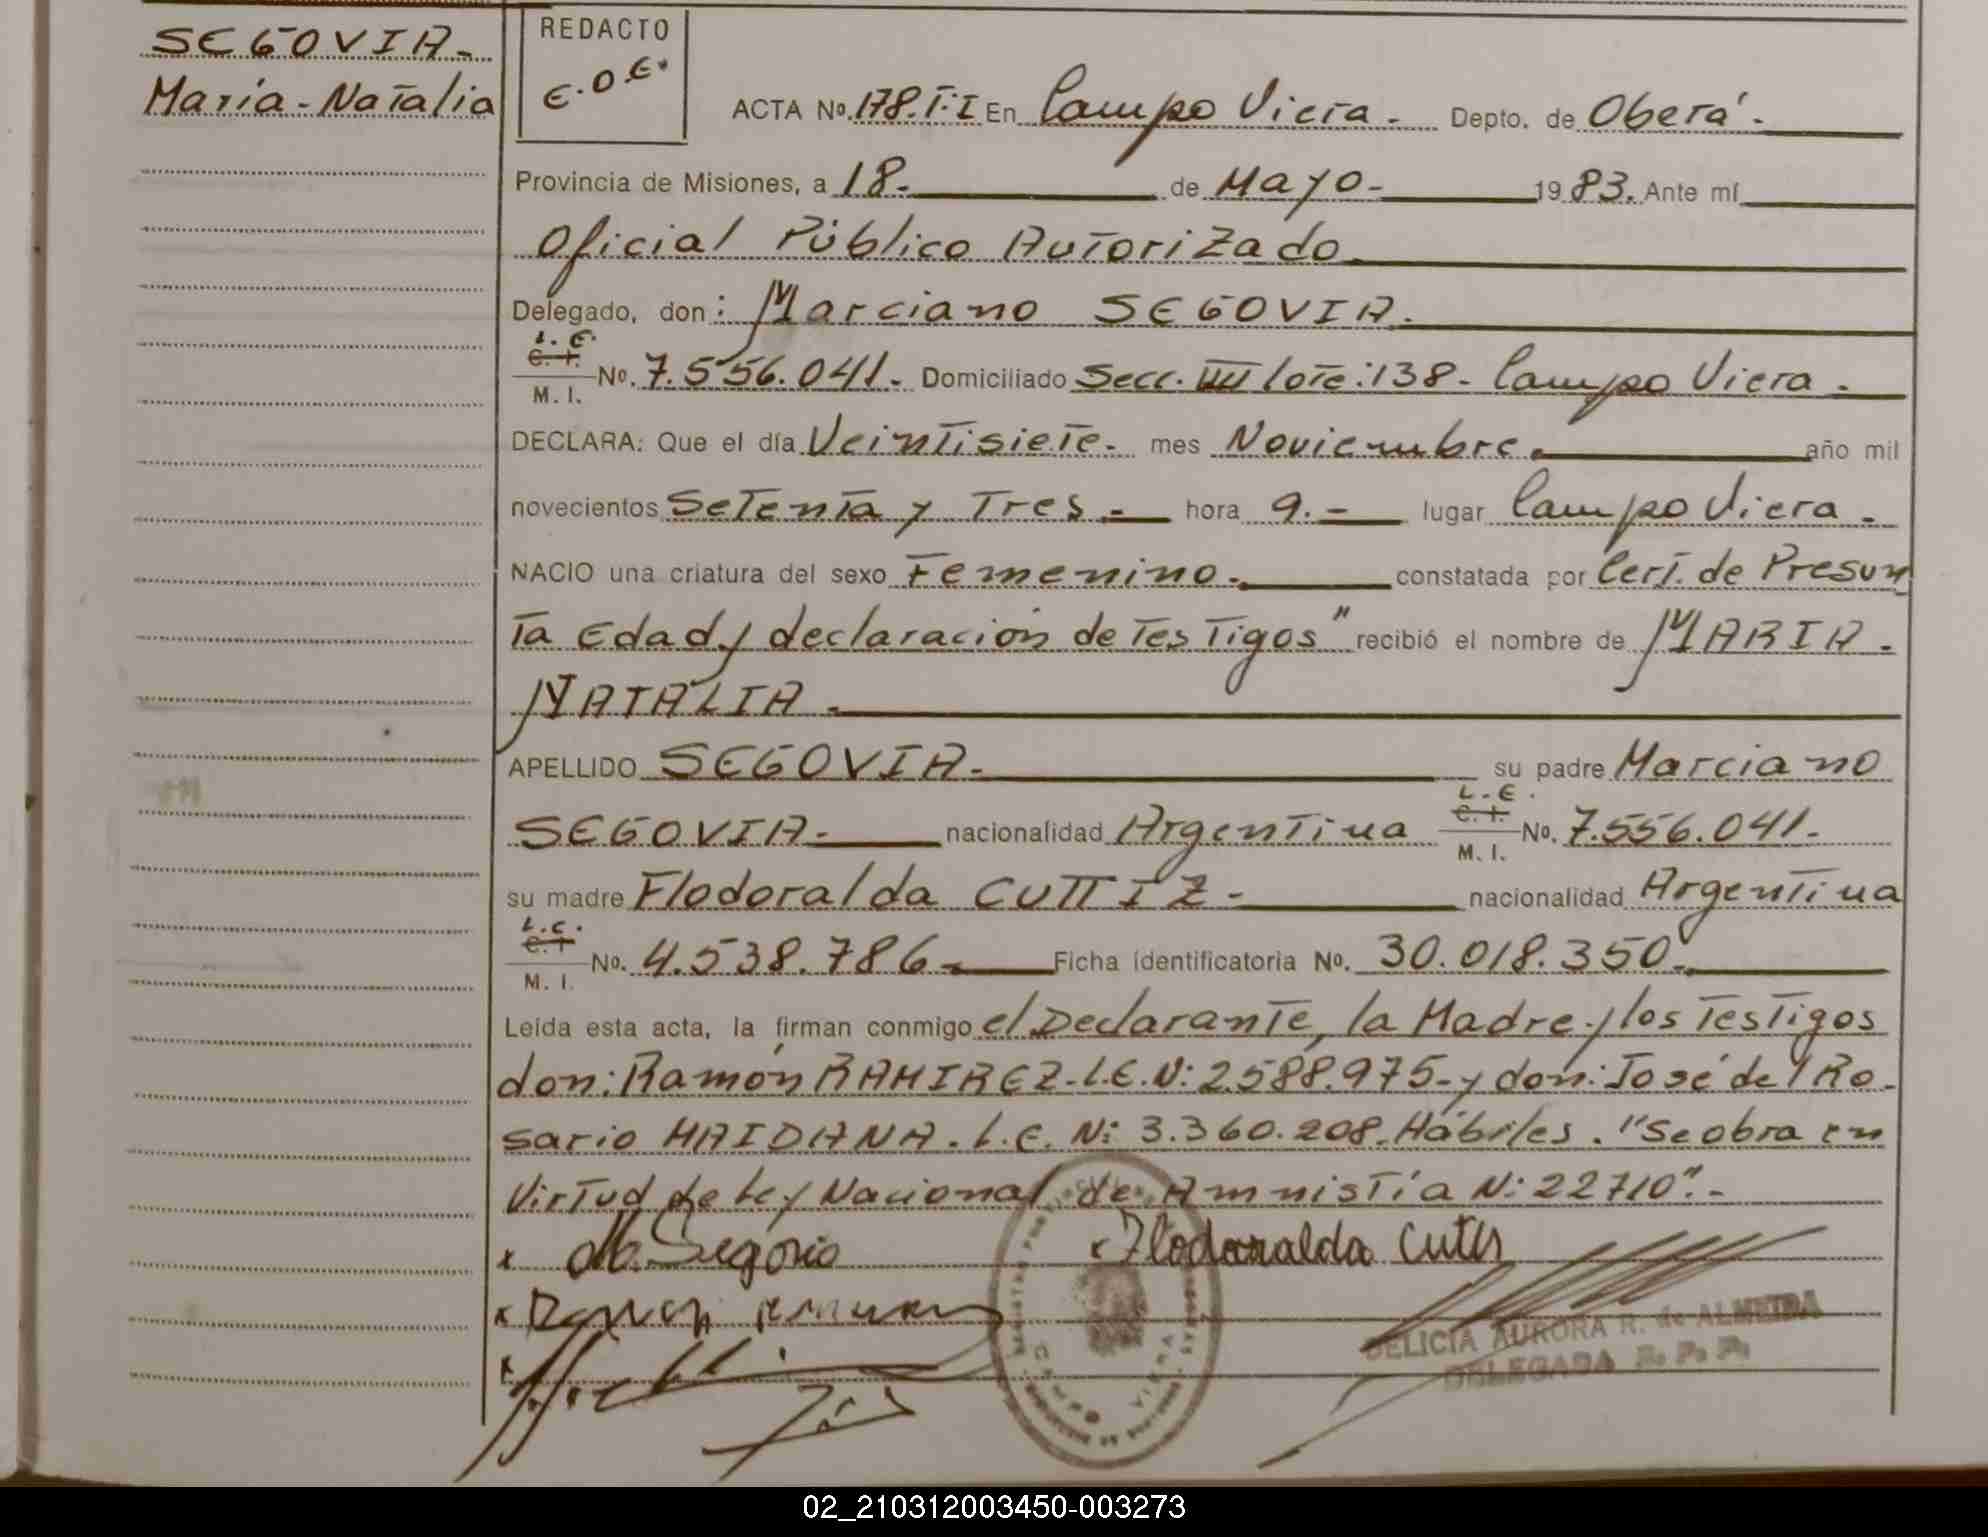 SEGOVIA-
María-Natalia
REDACTO
E.O.E.
ACTA No. 178.T:I En Campo Viera. Depto. de Oberá.
Provincia de Misiones, a 18. de Mayo- 1983. Ante mí
Oficial Público Autorizado
Delegado, don: Marciano SEGOVIA.
L.E.
C.I.
M.I. No. 7.556.041. Domiciliado Secc. III lote:138- Campo Viera.
DECLARA: Que el día Veintisiete. mes Noviembre. año mil
novecientos Setenta y Tres.- hora 9.- lugar Campo Viera.
NACIO una criatura del sexo Femenino. constatada por Cert. de Presun
ta Edad y declaración de testigos" recibió el nombre de MARIA-
NATALIA-
APELLIDO SEGOVIA- su padre Marciano
SEGOVIA- nacionalidad Argentina L.E. C.I. M.I. No. 7.556.041.
su madre Flodoralda CUTTIZ- nacionalidad Argentina
L.C.
C.I.
M.I. No. 4.538.786- Ficha identificatoria No. 30.018.350-
Leída esta acta, la firman conmigo el Declarante, la Madre y los Testigos
don: Ramón RAMIREZ-L.E.N: 2.588.975- y don: José del Ro-
sario MAIDANA. L.E. N: 3.360.208. Hábiles. "Se obra en
Virtud de Ley Nacional de Amnistía N: 22710".-
x M. Segovia x Flodoralda Cutts
x
x
CAMPO VIERA
DELICIA AURORA R. de ALMEIDA
DELEGADA R. P. P.
02_210312003450-003273